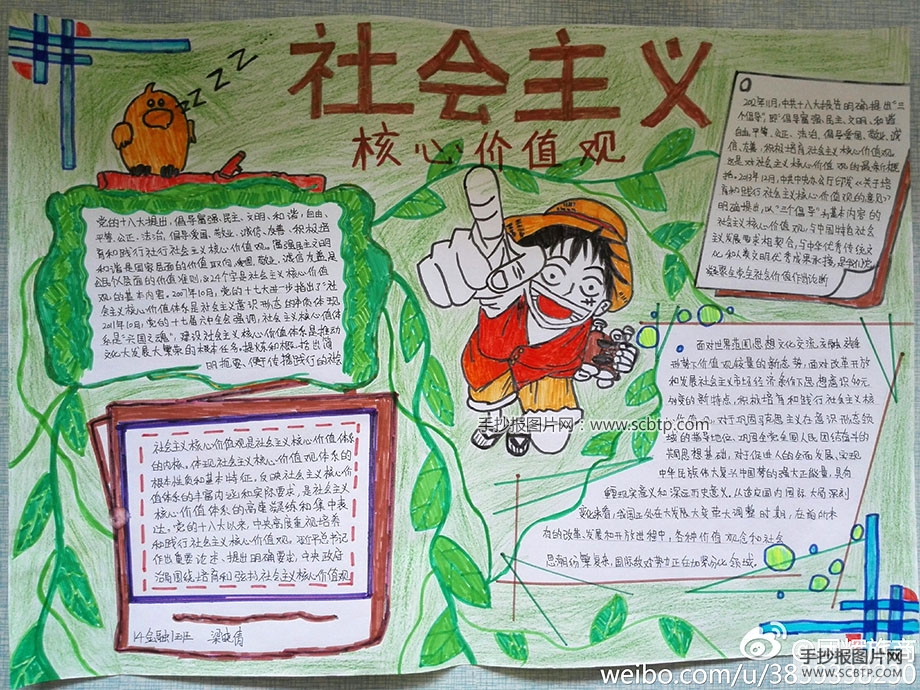 社会主义
核心价值观
ZZZZ
党的十八大提出，倡导富强、民主、文明、和谐，自由、
平等、公正、法治，倡导爱国、敬业、诚信、友善，积极培
育和践行社会主义核心价值观。富强民主文明
和谐是国家层面的价值取向，爱国、敬业、诚信、友善是
公民个人层面的价值准则，这24个字是社会主义核心价值
观的基本内容。2007年10月，党的十七大进一步指出了"社
会主义核心价值体系是社会主义意识形态的本质体现
2011年10月，党的十七届六中全会强调，社会主义核心价值体
系是"兴国之魂"，建设社会主义核心价值体系是推动
文化大发展大繁荣的根本任务。提炼和概括出简
明扼要、便于传播践行的社会
2012年11月，中共十八大报告明确提出"三
个倡导"，即"倡导富强、民主、文明、和谐
自由、平等、公正、法治，倡导爱国、敬业、诚
信、友善，积极培育社会主义核心价值观
这是对社会主义核心价值观的最新概
括。2013年12月，中共中央办公厅印发《关于培
育和践行社会主义核心价值观的意见》
明确提出，以"三个倡导"为基本内容的
社会主义核心价值观，与中国特色社会
主义发展要求相契合，与中华优秀传统文
化和人类文明优秀成果承接，是我们党
凝聚全党全社会价值共识作出的
社会主义核心价值观是社会主义核心价值体系
的内核，体现社会主义核心价值观体系的
根本性质和基本特征，反映社会主义核心价
值体系的丰富内涵和实际要求，是社会主义
核心价值体系的高度凝练和集中表
达。党的十八大以来，中央高度重视培养
和践行社会主义核心价值观。习近平总书记
作出重要论述、提出明确要求，中央政府
治局围绕培育和弘扬社会主义核心价值观
14金融1班 梁晓倩
面对世界范围思想文化交流交融交锋
形势下价值观较量的新态势，面对改革开放
和发展社会主义市场经济条件下思想意识多元
的新特点，积极培育和践行社会主义核
对于巩固马克思主义在意识形态领
域的指导地位、巩固全党全国人民团结奋斗的
共同思想基础，对于促进人的全面发展、实现
中华民族伟大复兴中国梦的强大正能量，具有
重要现实意义和深远历史意义。从适应国内国际大局深刻
变化来看，我国正处在大发展大变革大调整时期，在前所未
有的改革、发展和开放进程中，各种价值观念和社会
思潮纷繁复杂。国际敌对势力正在加紧
手抄报图片网：www.scbtp.com
手抄报图片网
WWW.SCBTP.COM